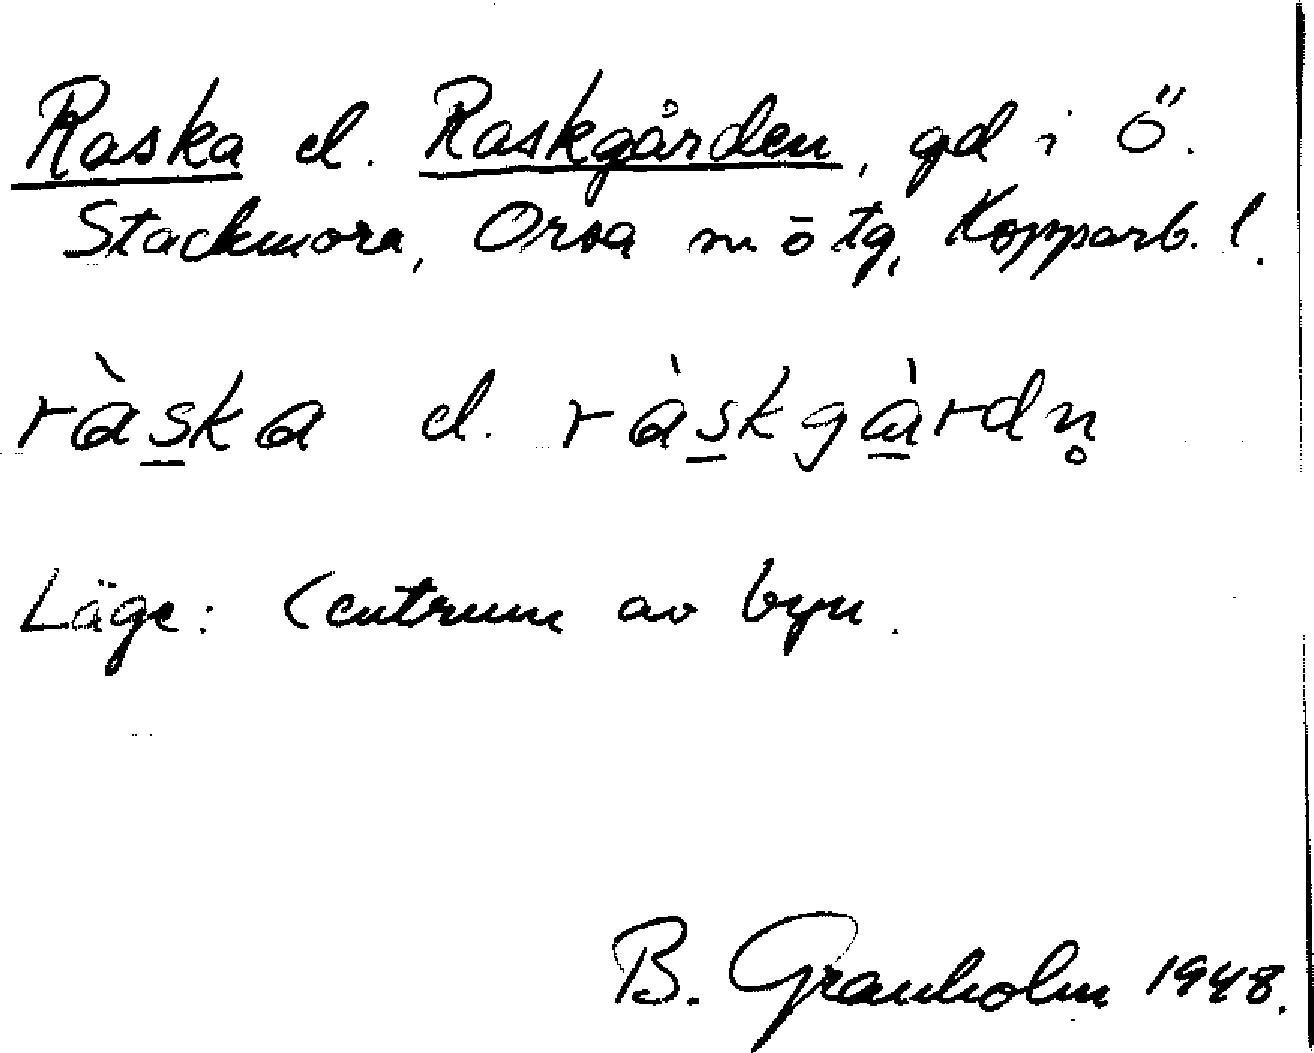 Raska el. Raskgården, gd i Ö.
Stackmora, Orsa sn o tg, Kopparb. l.
ràska el. ràskgàrdn̥
Läge: Centrum av byn.
B. Granholm 1948.